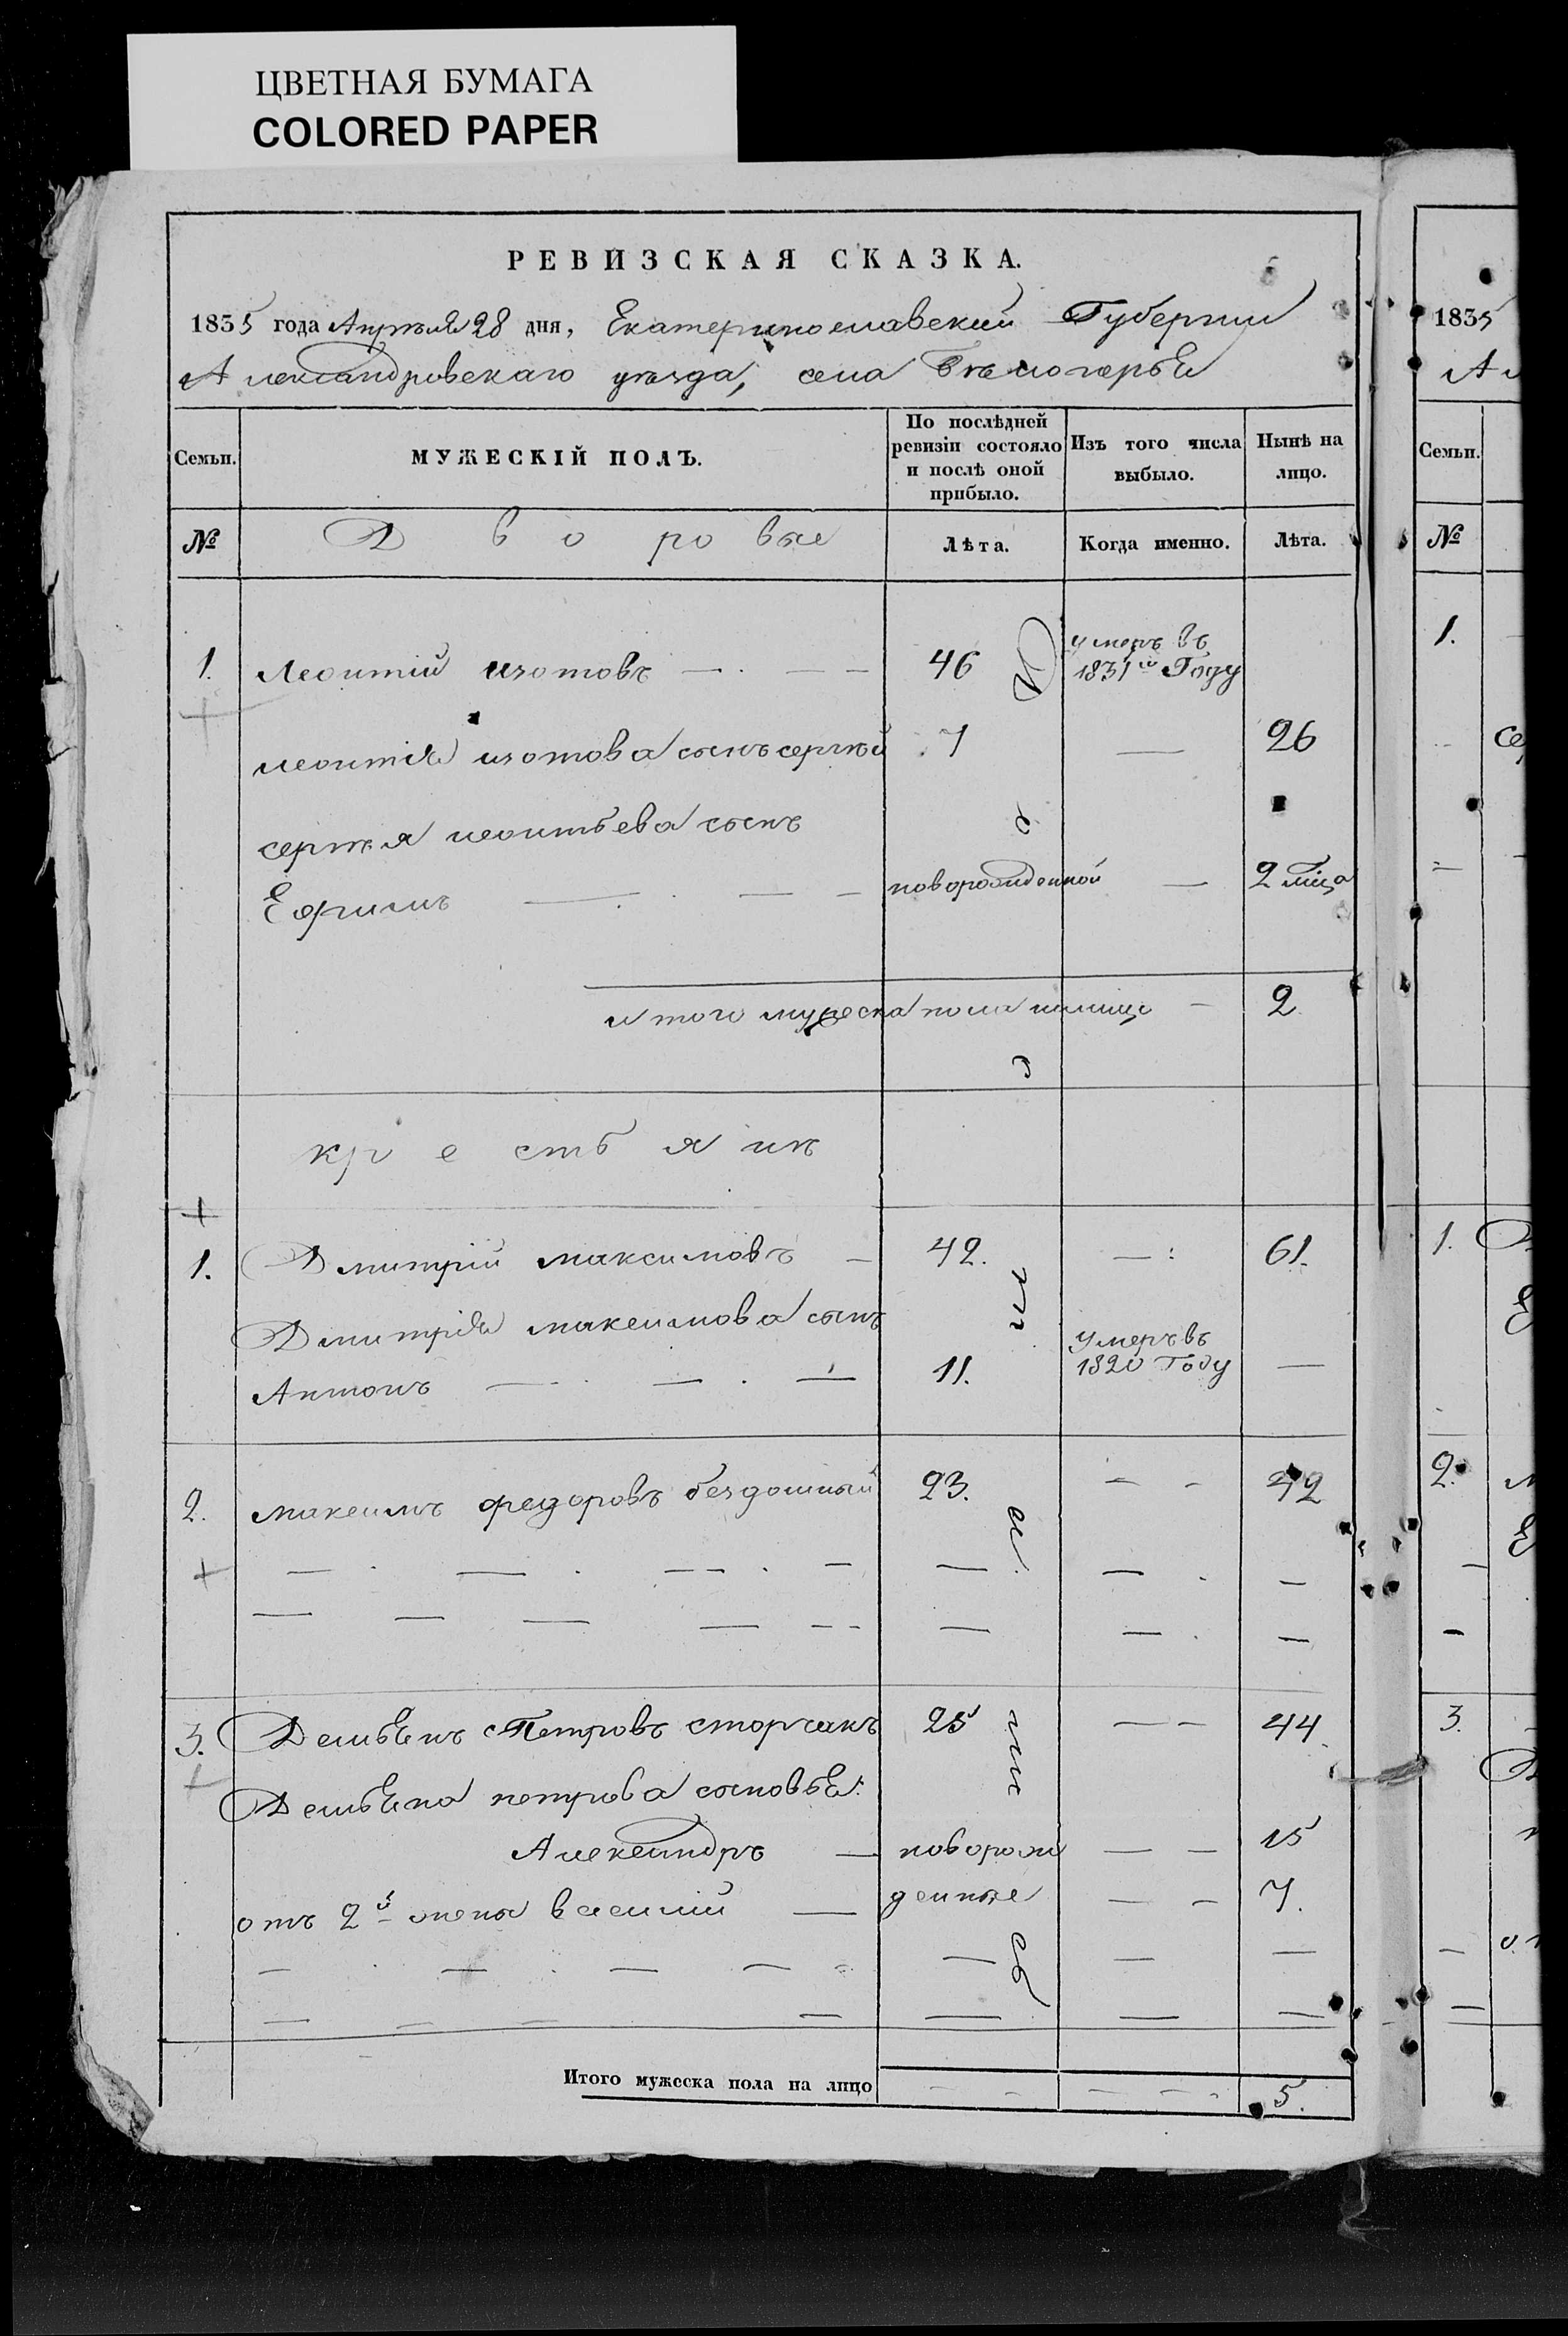 ЦВЕТНАЯ БУМАГА
COLORED PAPER
РЕВИЗСКАЯ СКАЗКА.
1835 года Апрѣля 28 дня, Екатеринославской Губернии
Александровскаго уѣзда, села Бѣлогорья
Семьи. МУЖЕСКІЙ ПОЛЪ. По послѣдней ревизіи состояло и послѣ оной прибыло. Изъ того числа выбыло. Нынѣ на лицо.
№ Дворовые Лѣта. Когда именно. Лѣта.
1. Леонтій изотовъ — 46 умеръ въ 1831м Году
леонтія изотова сынъ сергѣй 7 — 26
сергѣя леонтьева сынъ
Ефимъ — новорожденной — 2 мца
итого мужеска пола налицо — 2
крестьянъ
1. Дмитрій максимовъ — 42. — 61.
Дмитрія максимова сынъ
Антонъ — 11. умеръ въ 1820 Году —
2. максимъ федоровъ бездошный 23. — 42
3. Демьянъ Петровъ сторчакъ 25 — 44.
Демьяна петрова сыновья:
Александръ — поворож — 15
отъ 2й жены василий — денные — 7.
Итого мужеска пола на лицо — — 5.
1835
Семьи.
№
1.
1.
2.
3.